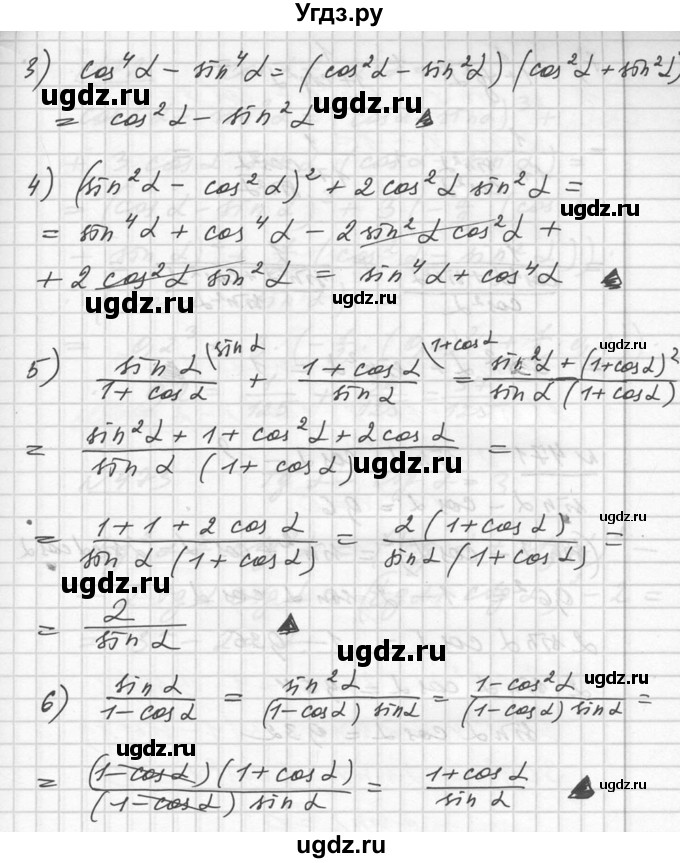 Угдз.ру
3) cos⁴α − sin⁴α = (cos²α − sin²α)(cos²α + sin²α)
ugdz.ru ugdz.ru
= cos²α − sin²α ▲
4) (sin²α − cos²α)² + 2cos²α sin²α =
ugdz.ru
= sin⁴α + cos⁴α − 2 sin²α cos²α +
+ 2 cos²α sin²α = sin⁴α + cos⁴α ▲
ugdz.ru ugdz.ru
5) sin α / (1 + cos α) \sin α + (1 + cos α) / sin α \1+cos α = (sin²α + (1+cos α)²) / (sin α (1+cos α))
ugdz.ru ugdz.ru
= (sin²α + 1 + cos²α + 2cos α) / (sin α (1 + cos α)) =
ugdz.ru
= (1 + 1 + 2 cos α) / (sin α (1 + cos α)) = 2(1+cos α) / (sin α (1+cos α)) =
ugdz.ru ugdz.ru
= 2 / sin α ▲
ugdz.ru
6) sin α / (1−cos α) = sin²α / ((1−cos α) sin α) = (1−cos²α) / ((1−cos α) sin α) =
ugdz.ru ugdz.ru
= (1−cos α)(1+cos α) / ((1−cos α) sin α) = (1+cos α) / sin α ▲
ugdz.ru ugdz.ru
ugdz.ru